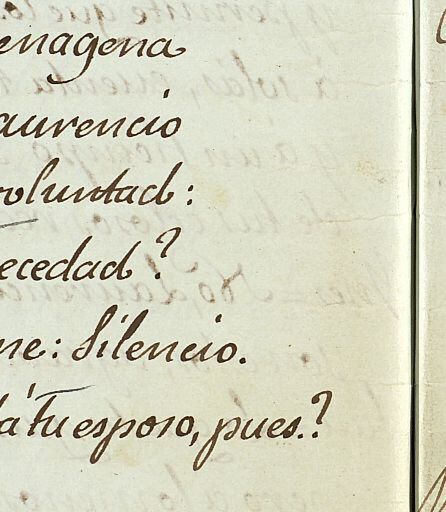 enagena
aurencio
voluntad:
ecedad?
ne: Silencio.
á tu esposo, pues.?